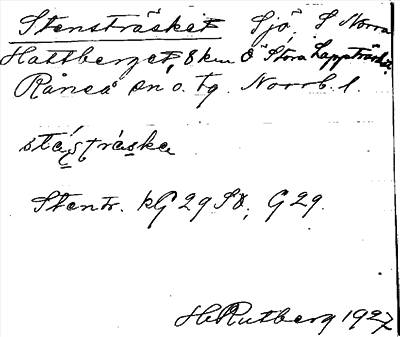 Stensträsket Sjö, S Norra
Hattberget, 8 km Ö Stora Lappträsket
Råneå sn o. tg. Norrb. l.
stá̱s̱trásḵa
Stentr. kG 29 SV; G 29.
H. Rutberg 1927